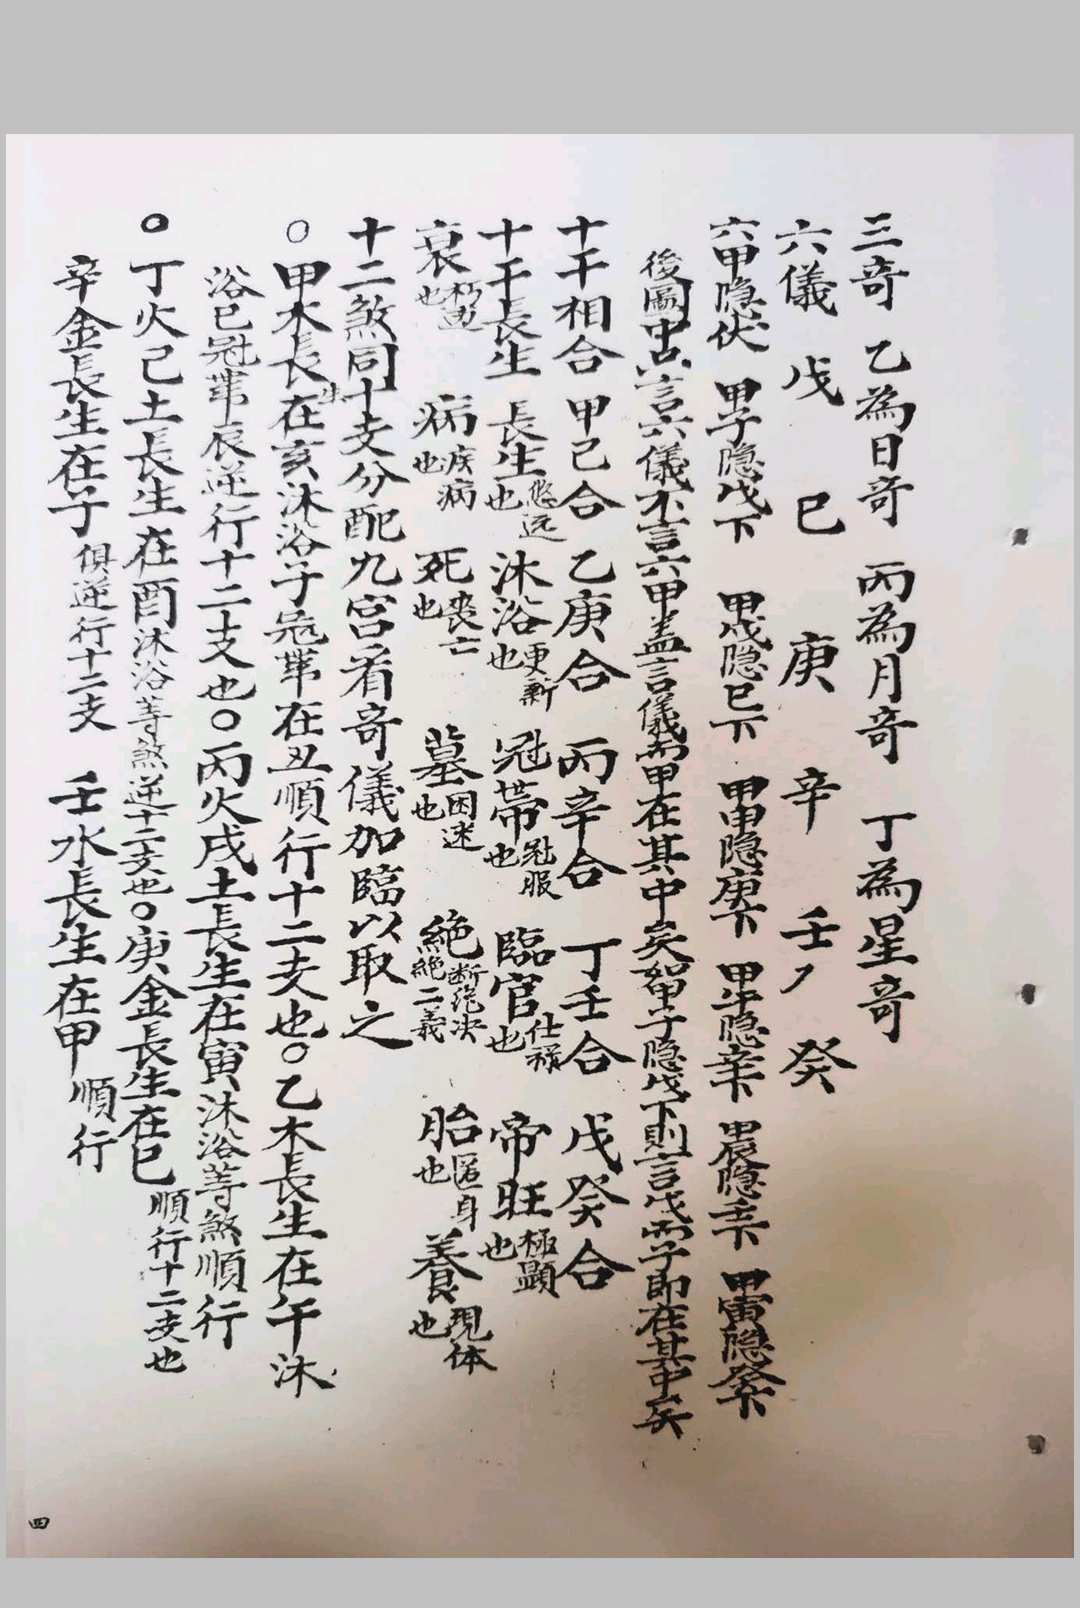 三奇 乙為日奇 丙為月奇 丁為星奇
六儀 戊 巳 庚 辛 壬 癸
六甲隐伏 甲子隐戊下 甲戌隐巳下 甲申隐庚下 甲午隐辛下 甲辰隐壬下 甲寅隐癸下
後圖中只言六儀不言六甲盖言儀而甲在其中矣如甲子隐戊下則言戊而子即在其中矣
十干相合 甲己合 乙庚合 丙辛合 丁壬合 戊癸合
十干長生 長生悠远也 沐浴更新也 冠帶冠服也 臨官仕禄也 帝旺極顯也
衰也 病疾病也 死喪亡也 墓困迷也 絕断绝决絕二義 胎匿身也 養現体也
十二煞同十支分配九宫看奇儀加臨以取之
○甲木長生在亥沐浴子冠带在丑順行十二支也○乙木長生在午沐
浴巳冠带辰逆行十二支也○丙火戌土長生在寅沐浴等煞順行
○丁火己土長生在酉沐浴等煞逆十二支也○庚金長生在巳順行十二支也
辛金長生在子俱逆行十二支 壬水長生在甲順行
四